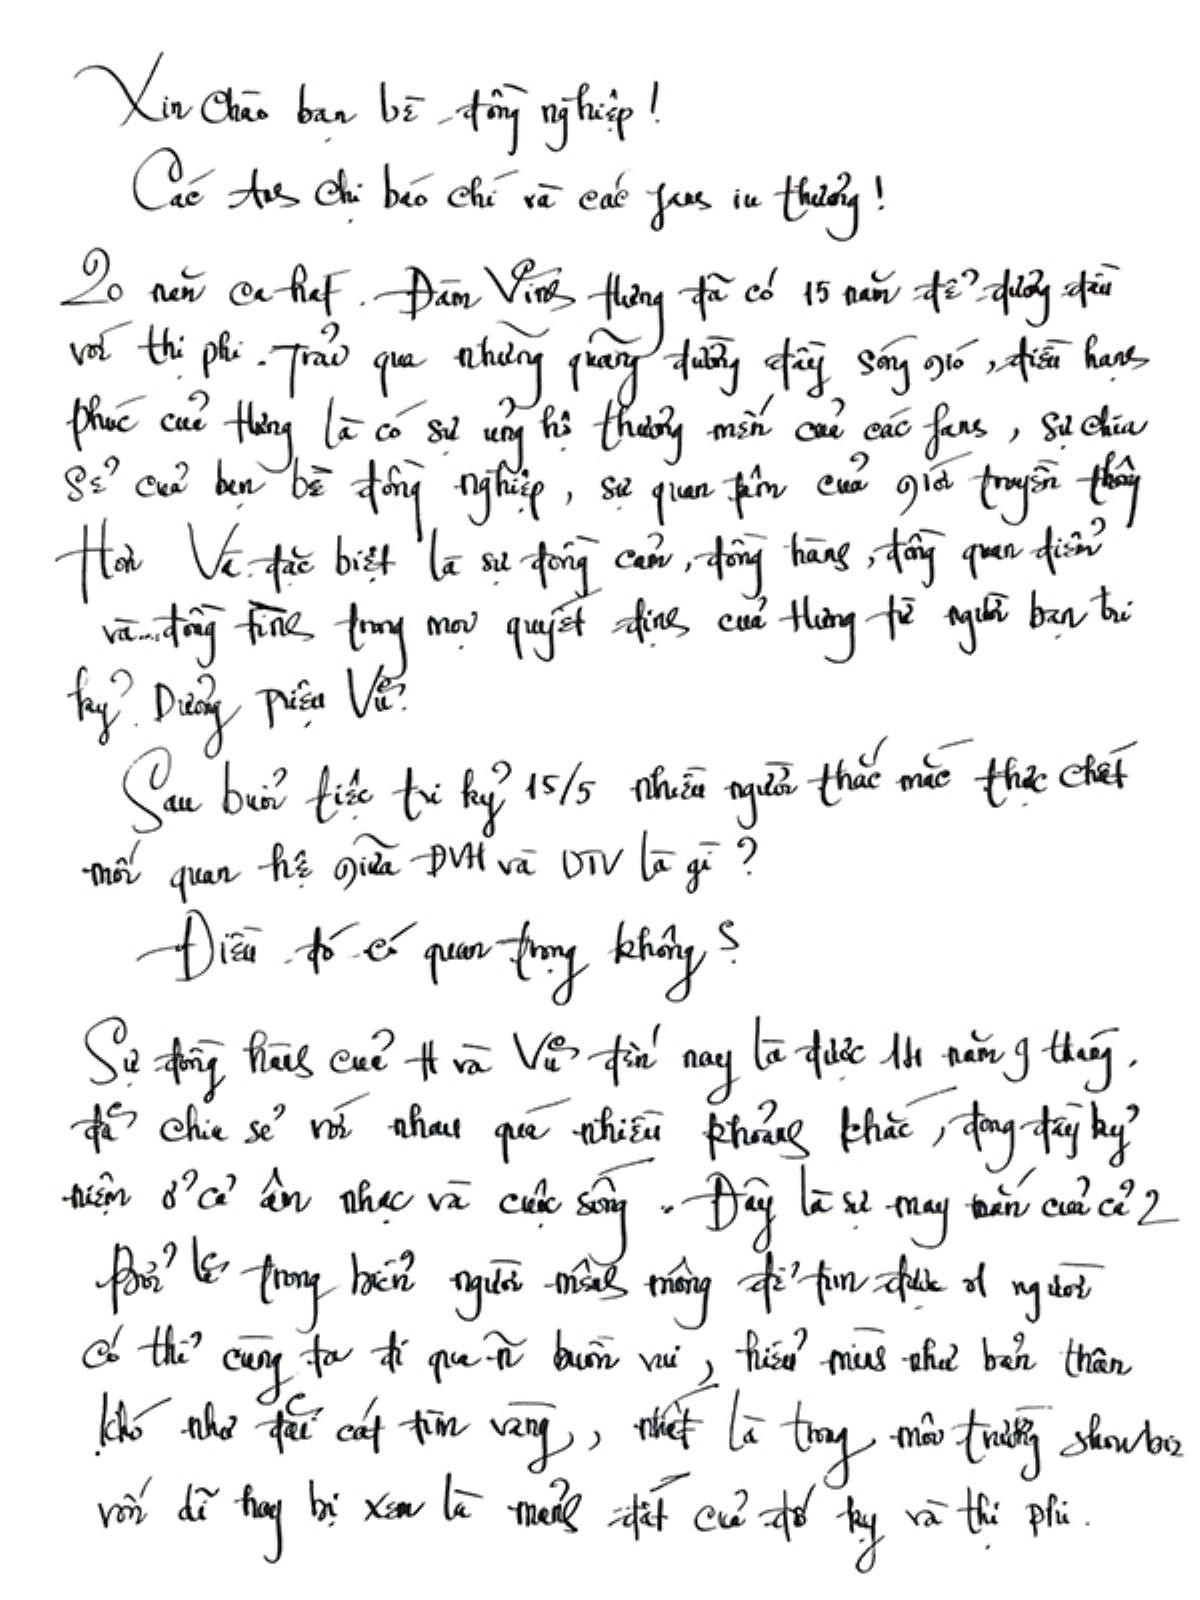 Xin chào bạn bè đồng nghiệp!
Các Anh chị báo chí và các fans iu thương!
20 năm ca hát. Đàm Vĩnh Hưng đã có 15 năm để đương đầu
với thị phi. Trải qua những quãng đường đầy sóng gió, điều hạnh
phúc của Hưng là có sự ủng hộ thương mến của các fans, sự chia
sẻ của bạn bè đồng nghiệp, sự quan tâm của giới truyền thông
Hơn Và đặc biệt là sự đồng cảm, đồng hành, đồng quan điểm
và... đồng tình trong mọi quyết định của Hưng từ người bạn tri
kỷ? Dương Triệu Vũ.
Sau buổi tiệc tri kỷ 15/5 nhiều người thắc mắc thực chất
mối quan hệ giữa ĐVH và DTV là gì?
Điều đó có quan trọng không?
Sự đồng hành của H và Vũ đến nay là được 14 năm 9 tháng.
đã chia sẻ với nhau quá nhiều khoảnh khắc, đong đầy kỷ
niệm ở cả âm nhạc và cuộc sống. Đây là sự may mắn của cả 2
Bởi lẽ trong biển người mênh mông để tìm được 1 người
có thể cùng ta đi qua n~ buồn vui, hiểu mình như bản thân
khó như đãi cát tìm vàng, nhất là trong môi trường showbiz
vốn dĩ hay bị xem là mảnh đất của đố kỵ và thị phi.